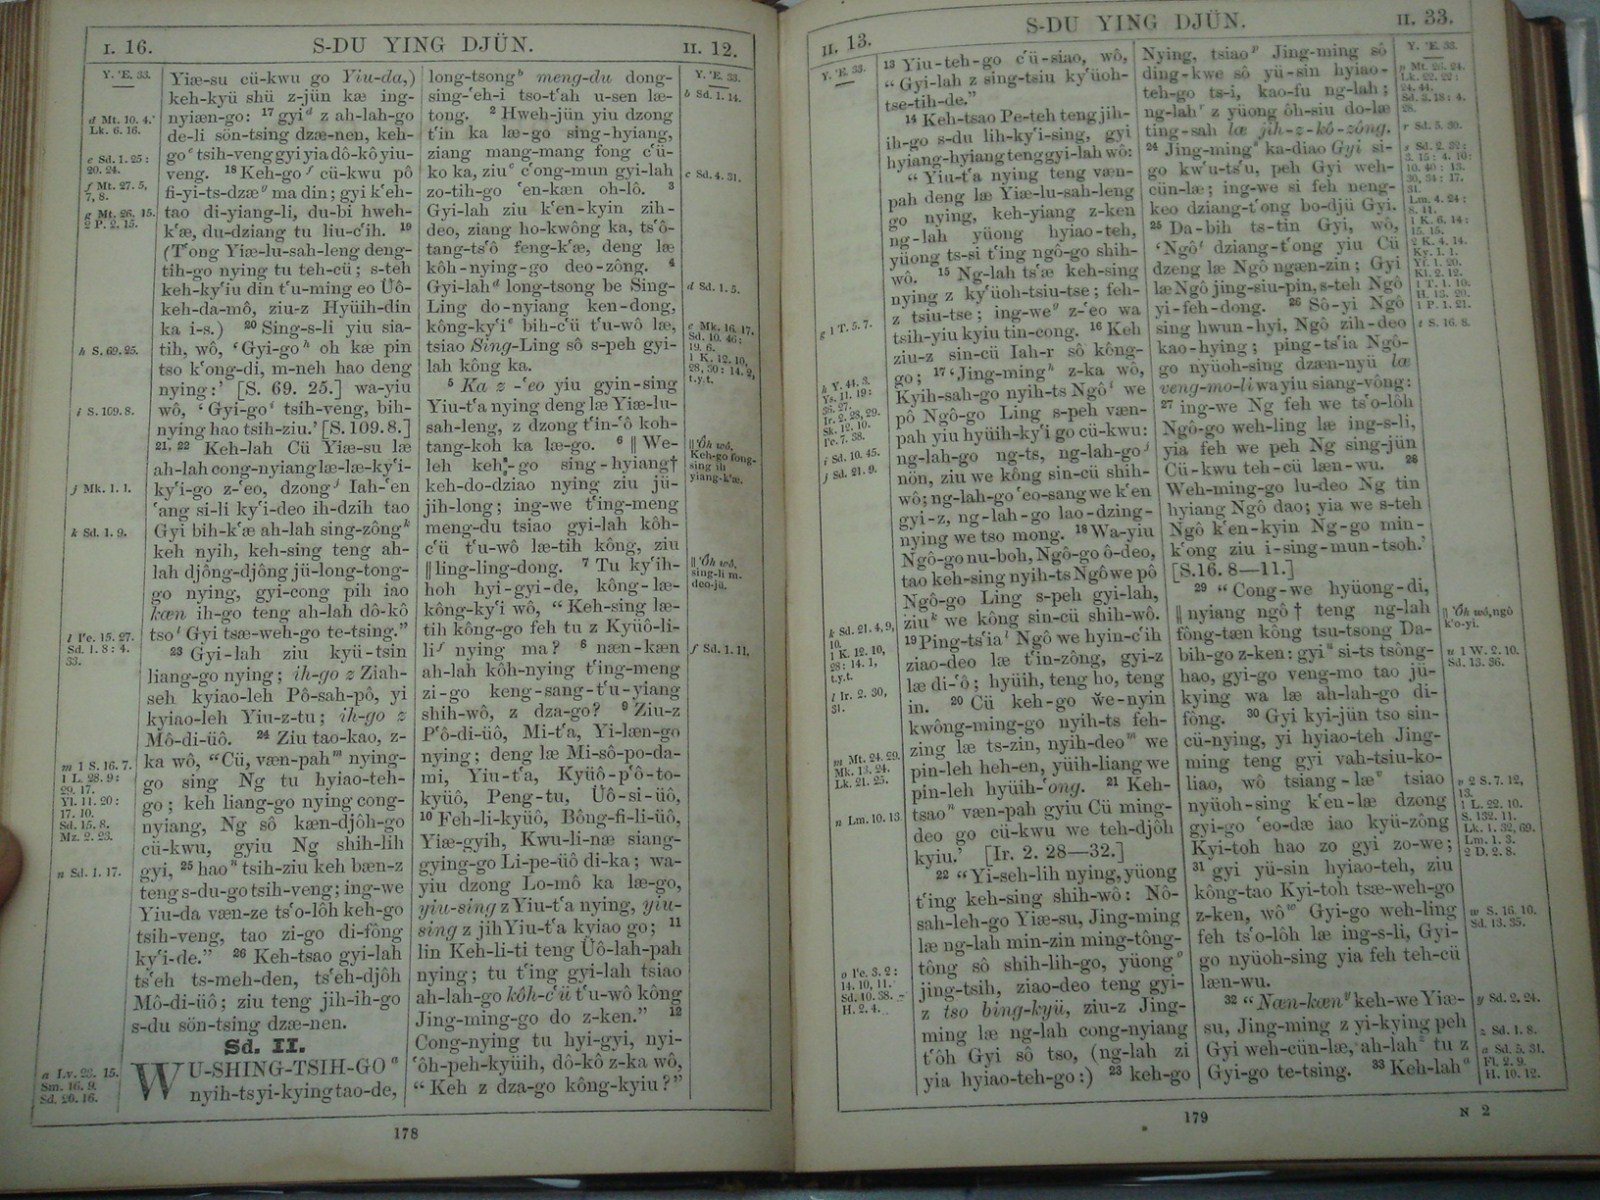 I. 16.
S-DU YING DJÜN.
II. 12.
Y. ʻE. 33.
d Mt. 10. 4.
Lk. 6. 16.
e Sd. 1. 25:
20. 24.
f Mt. 27. 5,
7, 8.
g Mt. 26. 15.
2 P. 2. 15.
h S. 69. 25.
i S. 109. 8.
j Mk. 1. 1.
k Sd. 1. 9.
l Pe. 15. 27.
Sd. 1. 8: 4.
33.
m 1 S. 16. 7.
1 L. 28. 9:
29. 17.
Yl. 11. 20:
17. 10.
Sd. 15. 8.
Mz. 2. 23.
n Sd. 1. 17.
a Lv. 23. 15.
Sm. 16. 9.
Sd. 20. 16.
Yiæ-su cü-kwu go Yiu-da,)
keh-kyü shü z-jün kæ ing-
nyiæn-go: 17 gyi d z ah-lah-go
de-li sön-tsing dzæ-nen, keh-
go e tsih-veng gyi yia dô-kô yiu-
veng. 18 Keh-go f cü-kwu pô
fi-yi-ts-dzæ g ma din; gyi kʻeh-
tao di-yiang-li, du-bi hweh-
kʻæ, du-dziang tu liu-cʻih. 19
(Tʻong Yiæ-lu-sah-leng deng-
tih-go nying tu teh-cü; s-teh
keh-kyʻiu din tʻu-ming eo Üô-
keh-da-mô, ziu-z Hyüih-din
ka i-s.) 20 Sing-s-li yiu sia-
tih, wô, ‘Gyi-go h oh kæ pin
tso kʻong-di, m-neh hao deng
nying:’ [S. 69. 25.] wa-yiu
wô, ‘Gyi-go i tsih-veng, bih-
nying hao tsih-ziu.’ [S. 109. 8.]
21, 22 Keh-lah Cü Yiæ-su læ
ah-lah cong-nyiang læ-læ-kyʻi-
kyʻi-go z-ʻeo, dzong j Iah-ʻen
ʻang si-li kyʻi-deo ih-dzih tao
Gyi bih-kʻæ ah-lah sing-zông k
keh nyih, keh-sing teng ah-
lah djông-djông jü-long-tong-
go nying, gyi-cong pih iao
kæn ih-go teng ah-lah dô-kô
tso l Gyi tsæ-weh-go te-tsing.”
23 Gyi-lah ziu kyü-tsin
liang-go nying; ih-go z Ziah-
seh kyiao-leh Pô-sah-pô, yi
kyiao-leh Yiu-z-tu; ih-go z
Mô-di-üô. 24 Ziu tao-kao, z-
ka wô, “Cü, væn-pah m nying-
go sing Ng tu hyiao-teh-
go; keh liang-go nying cong-
nyiang, Ng sô kæn-djôh-go
cü-kwu, gyiu Ng shih-lih
gyi, 25 hao n tsih-ziu keh bæn-z
teng s-du-go tsih-veng; ing-we
Yiu-da væn-ze tsʻo-lôh keh-go
tsih-veng, tao zi-go di-fông
kyʻi-de.” 26 Keh-tsao gyi-lah
tsʻeh ts-meh-den, tsʻeh-djôh
Mô-di-üô; ziu teng jih-ih-go
s-du sön-tsing dzæ-nen.
Sd. II.
WU-SHING-TSIH-GO a
nyih-ts yi-kying tao-de,
long-tsong b meng-du dong-
sing-ʻeh-i tso-tʻah u-sen læ-
tong. 2 Hweh-jün yiu dzong
tʻin ka læ-go sing-hyiang,
ziang mang-mang fong cʻü-
ko ka, ziu c cʻong-mun gyi-lah
zo-tih-go ʻen-kæn oh-lô. 3
Gyi-lah ziu kʻen-kyin zih-
deo, ziang ho-kwông ka, tsʻô-
tang-tsʻô feng-kʻæ, deng læ
kôh-nying-go deo-zông. 4
Gyi-lah d long-tsong be Sing-
Ling do-nyiang ken-dong,
kông-kyʻi e bih-cʻü tʻu-wô læ,
tsiao Sing-Ling sô s-peh gyi-
lah kông ka.
5 Ka z-ʻeo yiu gyin-sing
Yiu-tʻa nying deng læ Yiæ-lu-
sah-leng, z dzong tʻin-ʻô koh-
tang-koh ka læ-go. 6 ‖ We-
leh keh-go sing-hyiang†
keh-do-dziao nying ziu jü-
jih-long; ing-we tʻing-meng
meng-du tsiao gyi-lah kôh-
cʻü tʻu-wô læ-tih kông, ziu
‖ ling-ling-dong. 7 Tu kyʻih-
hoh hyi-gyi-de, kông-læ-
kông-kyʻi wô, “Keh-sing læ-
tih kông-go feh tu z Kyüô-li-
li f nying ma? 8 næn-kæn
ah-lah kôh-nying tʻing-meng
zi-go keng-sang-tʻu-yiang
shih-wô, z dza-go? 9 Ziu-z
Pʻô-di-üô, Mi-tʻa, Yi-læn-go
nying; deng læ Mi-sô-po-da-
mi, Yiu-tʻa, Kyüô-pʻô-to-
kyüô, Peng-tu, Üô-si-üô,
10 Feh-li-kyüô, Bông-fi-li-üô,
Yiæ-gyih, Kwu-li-næ siang-
gying-go Li-pe-üô di-ka; wa-
yiu dzong Lo-mô ka læ-go,
yiu-sing z Yiu-tʻa nying, yiu-
sing z jih Yiu-tʻa kyiao go; 11
lin Keh-li-ti teng Üô-lah-pah
nying; tu tʻing gyi-lah tsiao
ah-lah-go kôh-cʻü tʻu-wô kông
Jing-ming-go do z-ken.” 12
Cong-nying tu hyi-gyi, nyi-
ʻôh-peh-kyüih, dô-kô z-ka wô,
“Keh z dza-go kông-kyiu?”
Y. ʻE. 33.
b Sd. 1. 14.
c Sd. 4. 31.
d Sd. 1. 5.
e Mk. 16. 17.
Sd. 10. 46:
19. 6.
1 K. 12. 10,
28, 30: 14. 2,
t.y.t.
‖ ʻÔh wô,
Keh-go fong-
sing ih
yiang-kʻæ.
‖ ʻÔh wô,
sing-li m-
deo-jü.
f Sd. 1. 11.
178
II. 13.
S-DU YING DJÜN.
II. 33.
Y. ʻE. 33.
g 1 T. 5. 7.
h Y. 44. 3.
Ys. 11. 19:
36. 27.
Ir. 2. 28, 29.
Sk. 12. 10.
Pe. 7. 38.
i Sd. 10. 45.
j Sd. 21. 9.
k Sd. 21. 4, 9,
10.
1 K. 12. 10,
28: 14. 1,
t.y.t.
l Ir. 2. 30,
31.
m Mt. 24. 29.
Mk. 13. 24.
Lk. 21. 25.
n Lm. 10. 13
o Pe. 3. 2:
14. 10, 11.
Sd. 10. 38.
H. 2. 4.
13 Yiu-teh-go cʻü-siao, wô,
“Gyi-lah z sing-tsiu kyʻüoh-
tse-tih-de.”
14 Keh-tsao Pe-teh teng jih-
ih-go s-du lih-kyʻi-sing, gyi
hyiang-hyiang teng gyi-lah wô:
“Yiu-tʻa nying teng væn-
pah deng læ Yiæ-lu-sah-leng
go nying, keh-yiang z-ken
ng-lah yüong hyiao-teh,
yüong ts-si tʻing ngô-go shih-
wô. 15 Ng-lah tsʻæ keh-sing
nying z kyʻüoh-tsiu-tse; feh-
z tsiu-tse; ing-we g z-ʻeo wa
tsih-yiu kyiu tin-cong. 16 Keh
ziu-z sin-cü Iah-r sô kông-
go; 17 ‘Jing-ming h z-ka wô,
Kyih-sah-go nyih-ts Ngô i we
pô Ngô-go Ling s-peh væn-
pah yiu hyüih-kyʻi go cü-kwu:
ng-lah-go ng-ts, ng-lah-go j
nön, ziu we kông sin-cü shih-
wô; ng-lah-go ʻeo-sang we kʻen
gyi-z, ng-lah-go lao-dzing-
nying we tso mong. 18 Wa-yiu
Ngô-go nu-boh, Ngô-go ô-deo,
tao keh-sing nyih-ts Ngô we pô
Ngô-go Ling s-peh gyi-lah,
ziu k we kông sin-cü shih-wô.
19 Ping-tsʻia l Ngô we hyin-cʻih
ziao-deo læ tʻin-zông, gyi-z
læ di-ʻô; hyüih, teng ho, teng
in. 20 Cü keh-go We-nyin
kwông-ming-go nyih-ts feh-
zing læ ts-zin, nyih-deo m we
pin-leh heh-en, yüih-liang we
pin-leh hyüih-ʻong. 21 Keh-
tsao n væn-pah gyiu Cü ming-
deo go cü-kwu we teh-djôh
kyiu.’ [Ir. 2. 28—32.]
22 “Yi-seh-lih nying, yüong
tʻing keh-sing shih-wô: Nô-
sah-leh-go Yiæ-su, Jing-ming
læ ng-lah min-zin ming-tông-
tông sô shih-lih-go, yüong o
jing-tsih, ziao-deo teng gyi-
z tso bing-kyü, ziu-z Jing-
ming læ ng-lah cong-nyiang
tʻôh Gyi sô tso, (ng-lah zi
yia hyiao-teh-go:) 23 keh-go
Nying, tsiao p Jing-ming sô
ding-kwe sô yü-sin hyiao-
teh-go ts-i, kao-fu ng-lah;
ng-lah r z yüong ôh-siu do-læ
ting-sah læ jih-z-kô-zông.
24 Jing-ming s ka-diao Gyi si-
go kwʻu-tsʻu, peh Gyi weh-
cün-læ; ing-we si feh neng-
keo dziang-tʻong bo-djü Gyi.
25 Da-bih ts-tin Gyi, wô,
‘Ngô t dziang-tʻong yiu Cü
dzeng læ Ngô ngæn-zin; Gyi
læ Ngô jing-siu-pin, s-teh Ngô
yi-feh-dong. 26 Sô-yi Ngô
sing hwun-hyi, Ngô zih-deo
kao-hying; ping-tsʻia Ngô-
go nyüoh-sing dzæn-nyü læ
veng-mo-li wa yiu siang-vông:
27 ing-we Ng feh we tsʻo-lôh
Ngô-go weh-ling læ ing-s-li,
yia feh we peh Ng sing-jün
Cü-kwu teh-cü læn-wu. 28
Weh-ming-go lu-deo Ng tin
hyiang Ngô dao; yia we s-teh
Ngô kʻen-kyin Ng-go min-
kʻong ziu i-sing-mun-tsoh.’
[S. 16. 8—11.]
29 “Cong-we hyüong-di,
‖ nyiang ngô † teng ng-lah
fông-tæn kông tsu-tsong Da-
bih-go z-ken: gyi u si-ts tsông-
hao, gyi-go veng-mo tao jü-
kying wa læ ah-lah-go di-
fông. 30 Gyi kyi-jün tso sin-
cü-nying, yi hyiao-teh Jing-
ming teng gyi vah-tsiu-ko-
liao, wô tsiang-læ v tsiao
nyüoh-sing kʻen-læ dzong
gyi-go ʻeo-dæ iao kyü-zông
Kyi-toh hao zo gyi zo-we;
31 gyi yü-sin hyiao-teh, ziu
kông-tao Kyi-toh tsæ-weh-go
z-ken, wô w Gyi-go weh-ling
feh tsʻo-lôh læ ing-s-li, Gyi-
go nyüoh-sing yia feh teh-cü
læn-wu.
32 “Næn-kæn y keh-we Yiæ-
su, Jing-ming z yi-kying peh
Gyi weh-cün-læ, ah-lah z tu z
Gyi-go te-tsing. 33 Keh-lah a
Y. ʻE. 33.
p Mt. 26. 24.
Lk. 22. 22:
24. 44.
Sd. 3. 18: 4.
28.
r Sd. 5. 30.
s Sd. 2. 32:
3. 15: 4. 10:
10. 40: 13.
30, 34: 17.
31.
Lm. 4. 24:
8. 11.
1 K. 6. 14:
15. 15.
2 K. 4. 14.
Ky. 1. 1.
Yf. 1. 20.
Kl. 2. 12.
1 T. 1. 10.
H. 13. 20.
1 P. 1. 21.
t S. 16. 8.
‖ ʻÔh wô, ngô
kʻo-yi.
u 1 W. 2. 10.
Sd. 13. 36.
v 2 S. 7. 12,
13.
1 L. 22. 10.
S. 132. 11.
Lk. 1. 32, 69.
Lm. 1. 3.
2 D. 2. 8.
w S. 16. 10.
Sd. 13. 35.
y Sd. 2. 24.
z Sd. 1. 8.
a Sd. 5. 31.
Fl. 2. 9.
H. 10. 12.
179
N 2